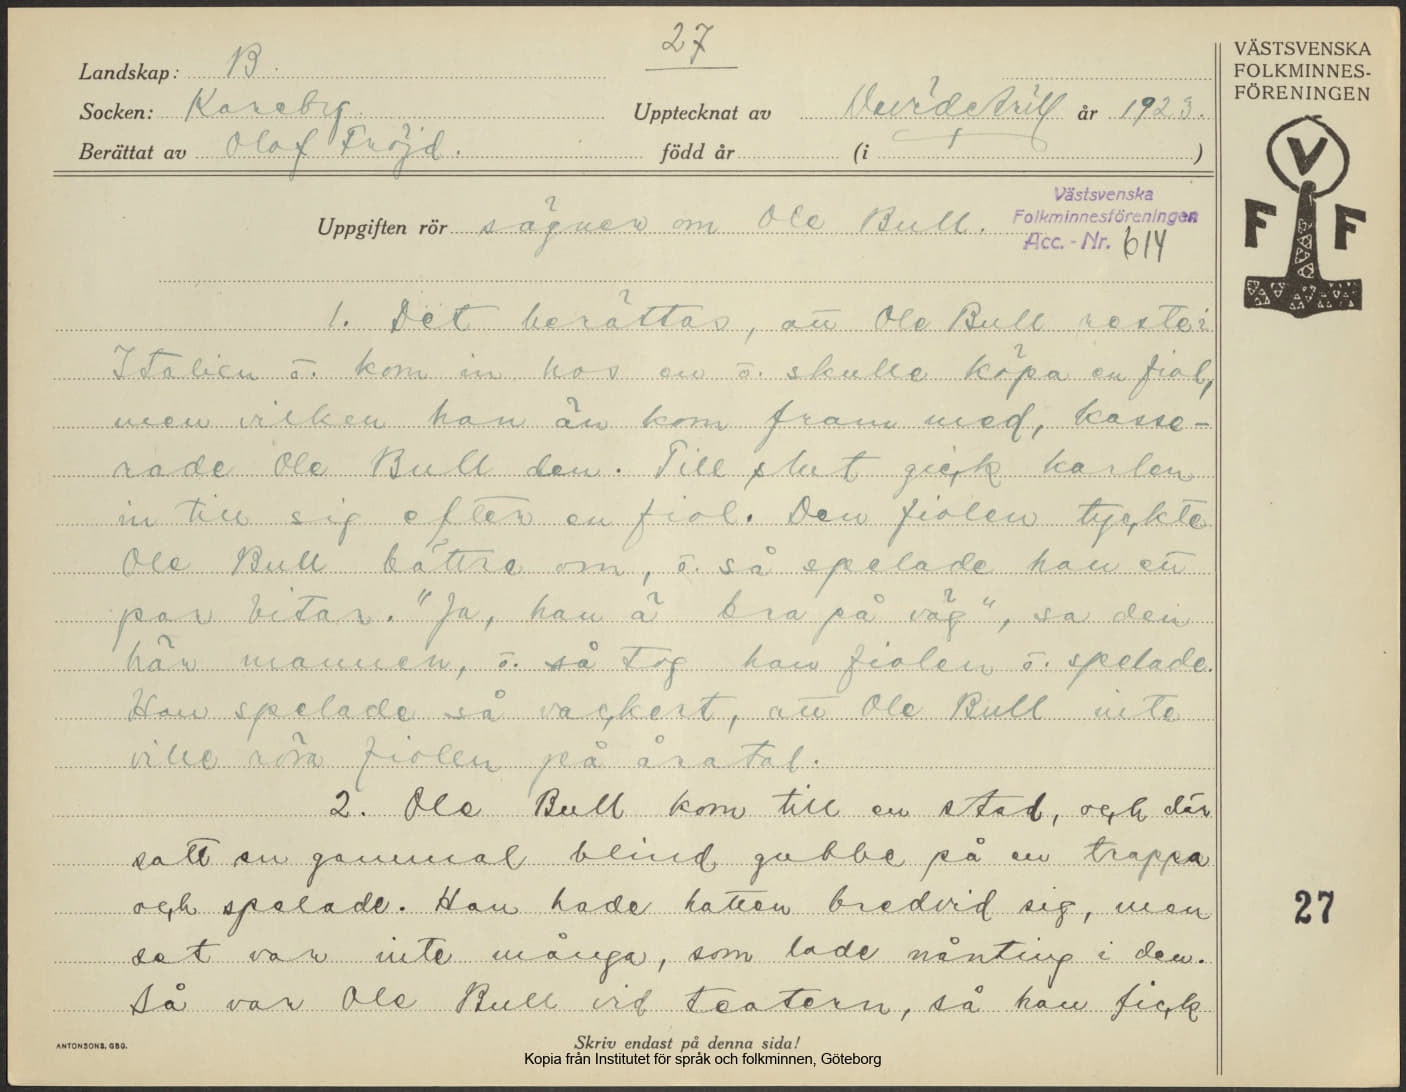 27
Landskap: B.
Socken: Kareby.
Upptecknat av år 1923.
Berättat av Olof Fröjd. född år (i )
VÄSTSVENSKA
FOLKMINNES-
FÖRENINGEN
V
F F
Uppgiften rör sägner om Ole Bull.
Västsvenska
Folkminnesföreningen
Acc.-Nr. 614
1. Det berättas, att Ole Bull reste i
Italien o. kom in hos en o. skulle köpa en fiol,
men vilken han än kom fram med, kasse-
rade Ole Bull den. Till slut gick karlen
in till sig efter en fiol. Den fiolen tyckte
Ole Bull bättre om, o. så spelade han ett
par bitar. "Ja, han ä bra på väg", sa den
här mannen, o. så tog han fiolen o. spelade.
Han spelade så vackert, att Ole Bull inte
ville röra fiolen på åratal.
2. Ole Bull kom till en stad, och där
satt en gammal blind gubbe på en trappa
och spelade. Han hade hatten bredvid sig, men
det var inte många, som lade nånting i den.
Så var Ole Bull vid teatern, så han fick
27
ANTONSONS, GBG.
Skriv endast på denna sida!
Kopia från Institutet för språk och folkminnen, Göteborg